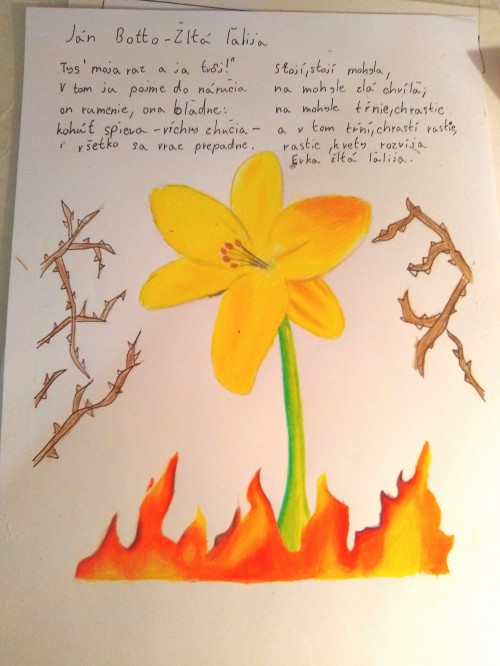 Ján Botto - Žltá ľalija
Tys' moja raz a ja tvoj!"
V tom ju pojme do náručia
on rumenie, ona bladne:
kohút spieva - víchry zhučia -
i všetko sa vraz prepadne.
Stojí, stojí mohyla,
na mohyle zlá chvíľa;
na mohyle tŕnie, chrastie
a v tom tŕní, chrastí rastie,
rastie, kvety rozvíja
Evka žltá ľalija.